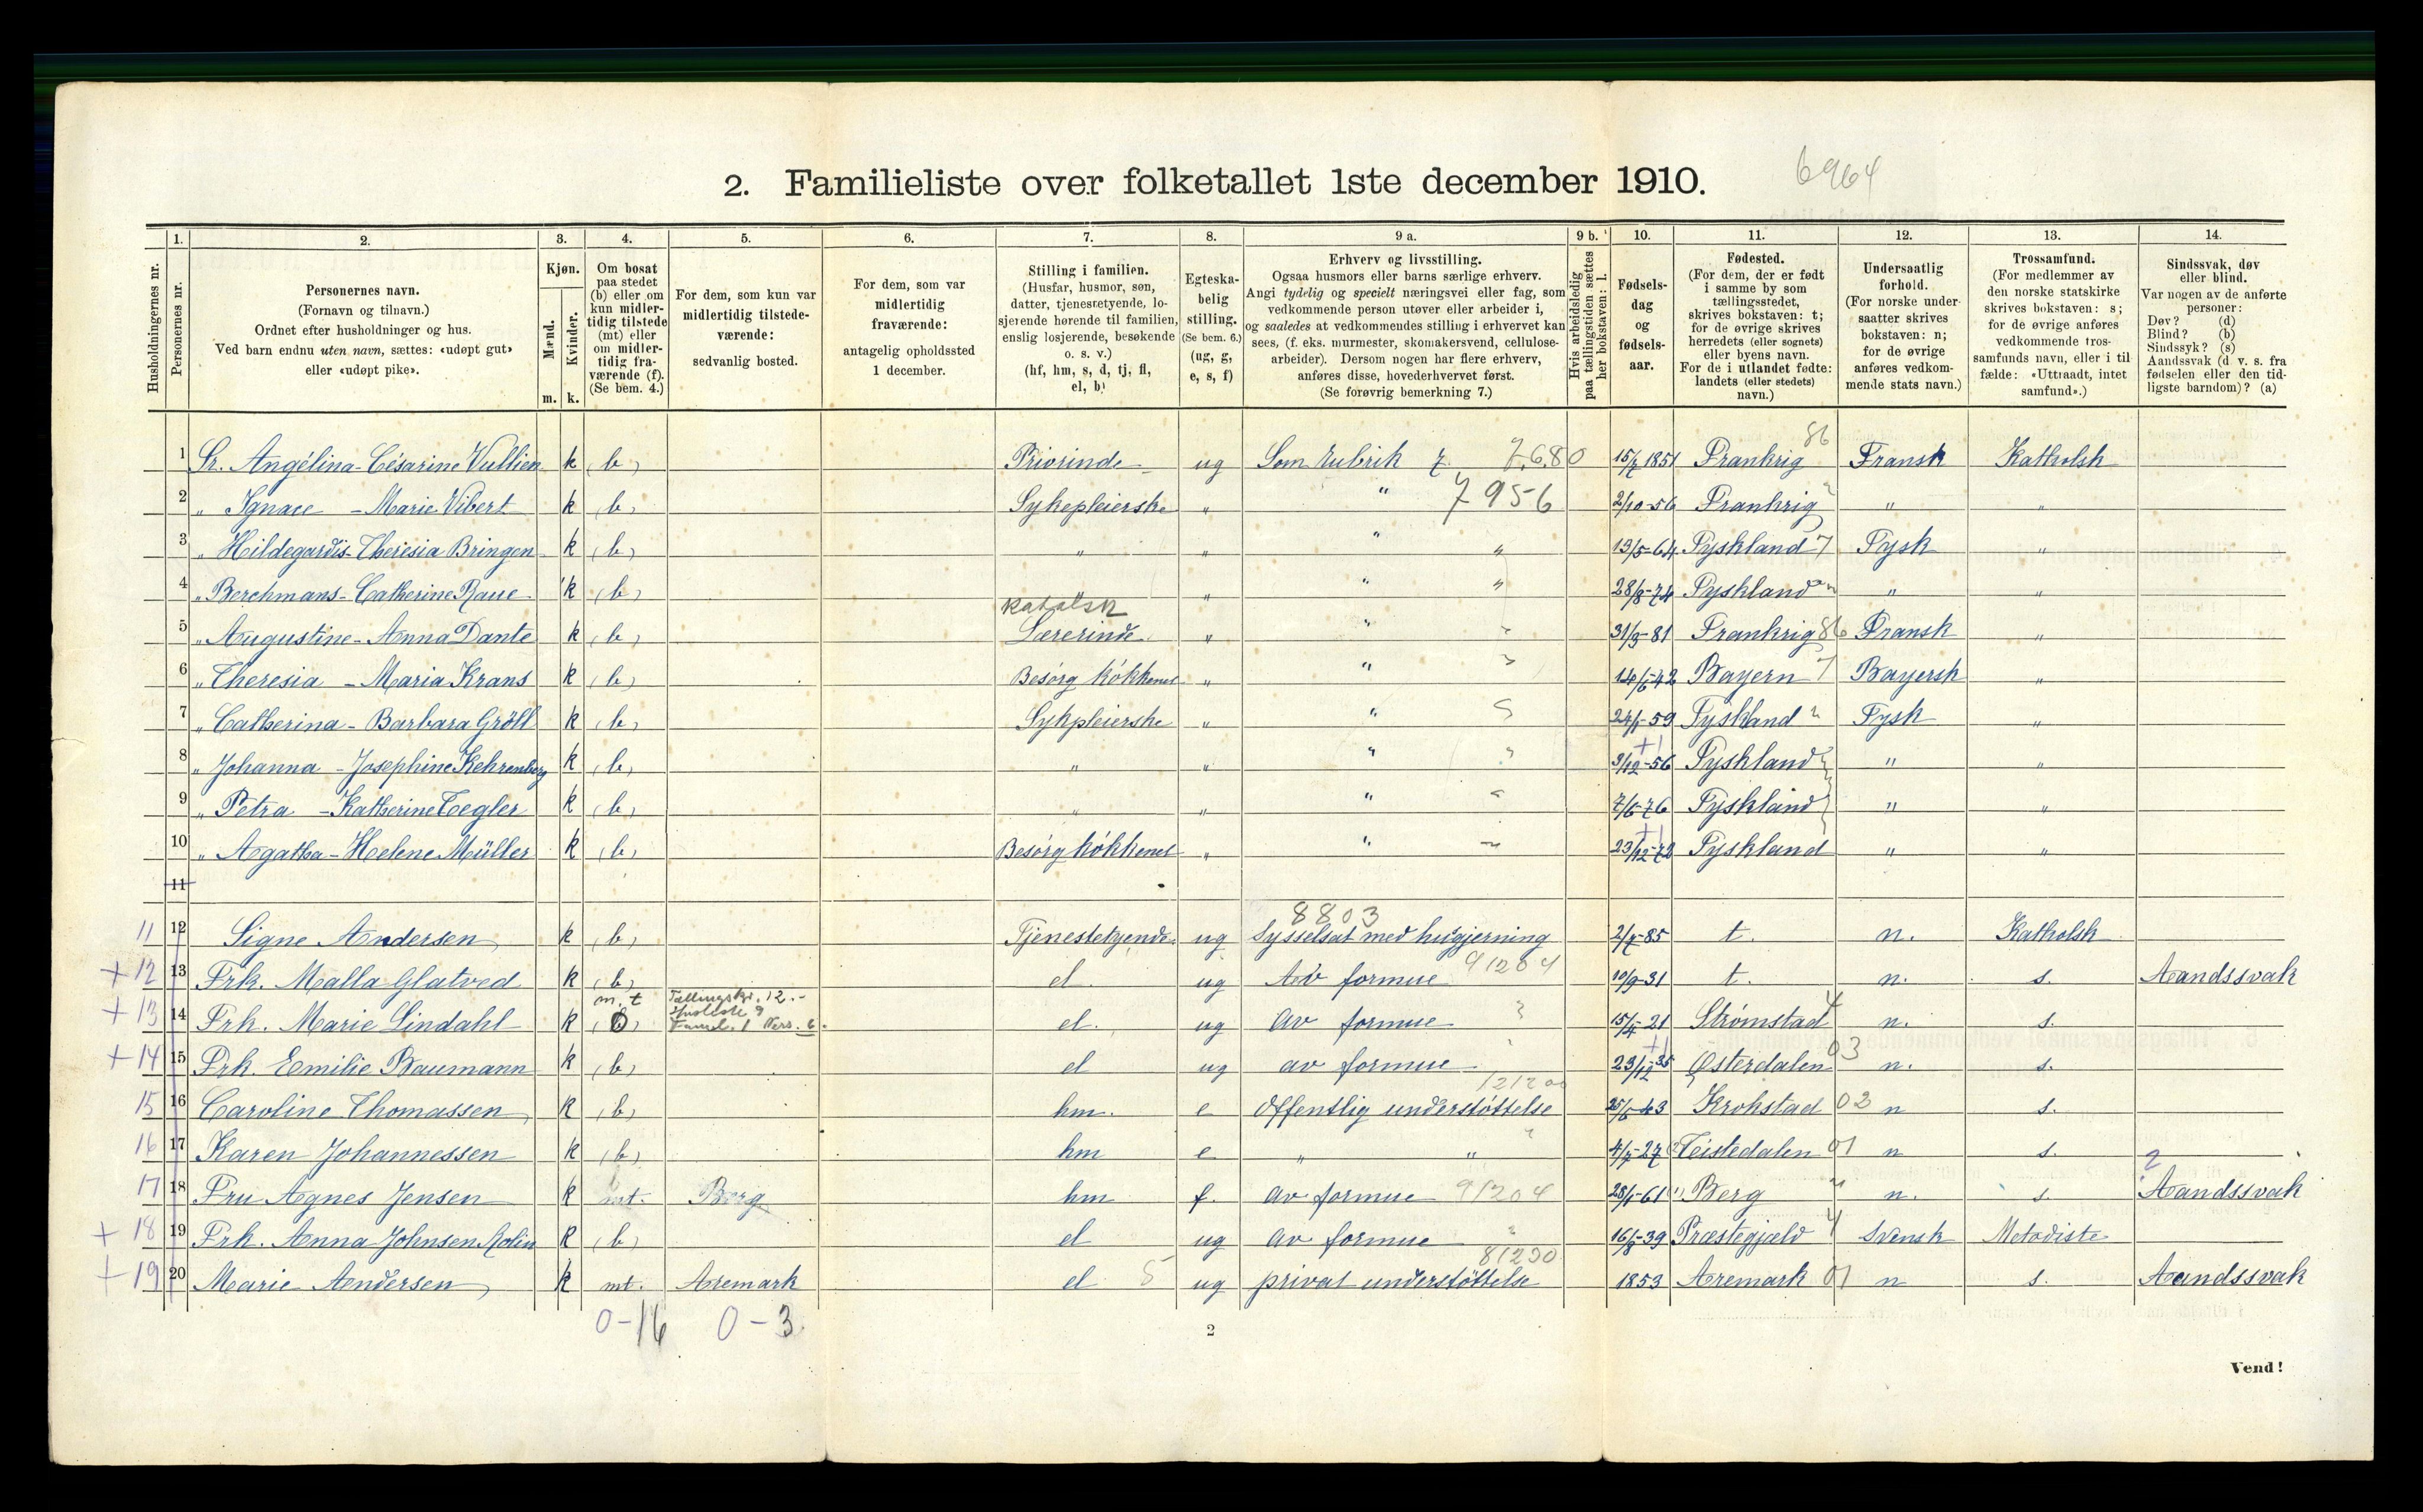 2. Familieliste over folketallet 1ste december 1910.
6964
Husholdningernes nr.
1. Personernes nr.
2. Personernes navn.
(Fornavn og tilnavn.)
Ordnet efter husholdninger og hus.
Ved barn endnu uten navn, sættes: «udøpt gut»
eller «udøpt pike».
3. Kjøn.
Mænd. m.
Kvinder. k.
4. Om bosat
paa stedet
(b) eller om
kun midler-
tidig tilstede
(mt) eller
om midler-
tidig fra-
værende (f).
(Se bem. 4.)
5. For dem, som kun var
midlertidig tilstede-
værende:
sedvanlig bosted.
6. For dem, som var
midlertidig
fraværende:
antagelig opholdssted
1 december.
7. Stilling i familien.
(Husfar, husmor, søn,
datter, tjenestyende, lo-
sjerende hørende til familien,
enslig losjerende, besøkende
o. s. v.)
(hf, hm, s, d, tj, fl,
el, b)
8. Egteska-
belig
stilling.
(Se bem. 6.)
(ug, g,
e, s, f)
9 a. Erhverv og livsstilling.
Ogsaa husmors eller barns særlige erhverv.
Angi tydelig og specielt næringsvei eller fag, som
vedkommende person utøver eller arbeider i,
og saaledes at vedkommendes stilling i erhvervet kan
sees, (f. eks. murmester, skomakersvend, cellulose-
arbeider). Dersom nogen har flere erhverv,
anføres disse, hovederhvervet først.
(Se forøvrig bemerkning 7.)
9 b. Hvis arbeidsledig
paa tællingstiden sættes
her bokstaven: l.
10. Fødsels-
dag
og
fødsels-
aar.
11. Fødested.
(For dem, der er født
i samme by som
tællingsstedet,
skrives bokstaven: t;
for de øvrige skrives
herredets (eller sognets)
eller byens navn.
For de i utlandet fødte:
landets (eller stedets)
navn.)
12. Undersaatlig
forhold.
(For norske under-
saatter skrives
bokstaven: n;
for de øvrige
anføres vedkom-
mende stats navn.)
13. Trossamfund.
(For medlemmer av
den norske statskirke
skrives bokstaven: s;
for de øvrige anføres
vedkommende tros-
samfunds navn, eller i til-
fælde: «Uttraadt, intet
samfund».)
14. Sindssvak, døv
eller blind.
Var nogen av de anførte
personer:
Døv? (d)
Blind? (b)
Sindssyk? (s)
Aandssvak (d. v. s. fra
fødselen eller den tid-
ligste barndom)? (a)
1 Sr. Angélina-Césarine Vullien k (b) Priorinde ug Som rubrik 7. 7680 15/7 1851 Frankrig 86 Fransk Katholsk
2 " Ignace - Marie Vibert k (b) Sykepleierske " " 7956 2/10-56 Frankrig " " "
3 " Hildegardis-Theresia Bringen k (b) " " " " 13/5-64 Tyskland 7 Tysk "
4 " Berchmans-Catherine Raue k (b) " " " " 28/8-74 Tyskland " " "
5 " Augustine-Anna Dante k (b) katolsk Lærerinde " " " 31/3-81 Frankrig 86 Fransk "
6 " Theresia - Maria Krans k (b) Besørg køkkenet " " " 14/5-42 Bayern 7 Bayersk "
7 " Catherina - Barbara Gröll k (b) Sykpleierske " " " 24/1-59 Tyskland " Tysk "
8 " Johanna - Josephine Kehrenberg k (b) " " " " 3/12-56 Tyskland " "
9 " Petra - Katherine Tegler k (b) " " " " 7/6-76 Tyskland " "
10 " Agatha-Helene Müller k (b) Besørg køkkenet " " " 23/12-72 Tyskland " "
11
11 12 Signe Andersen k (b) Tjenestetyende ug 8803 Sysselsat med husgjerning 2/7-85 t. n. Katholsk
+12 13 Frk. Malla Glatved k (b) el ug Av formue 91204 10/9-31 t. n. s. Aandssvak
+13 14 Frk. Marie Lindahl k m.t. Tællingskr. 12. Husliste 9 Famil. 1 Pers. 6. el. ug av formue " 15/4-21 Strømstad 4 n. s.
+14 15 Frk. Emilie Baumann k (b) el ug av formue " 23/12-35 Østerdalen 03 n. s.
15 16 Caroline Thomassen k (b) hm. e offentlig understøttelse 121200 25/5-43 Krokstad 02 n s.
16 17 Karen Johannessen k (b) hm e " " 4/7-27 Teistedalen 01 n s.
17 18 Fru Agnes Jensen k mt. Berg hm f. av formue 91204 28/1-61 Berg " n. s. Aandssvak
+18 19 Frk. Anna Johnsen Rolin k (b) el ug av formue " 16/8-39 Præstegjæld 4 Svensk Metodiste
+19 20 Marie Andersen k mt. Aremark el 5 ug privat understøttelse 81290 1853 Aremark 01 n s. Aandssvak
0-16 0-3
2
Vend!